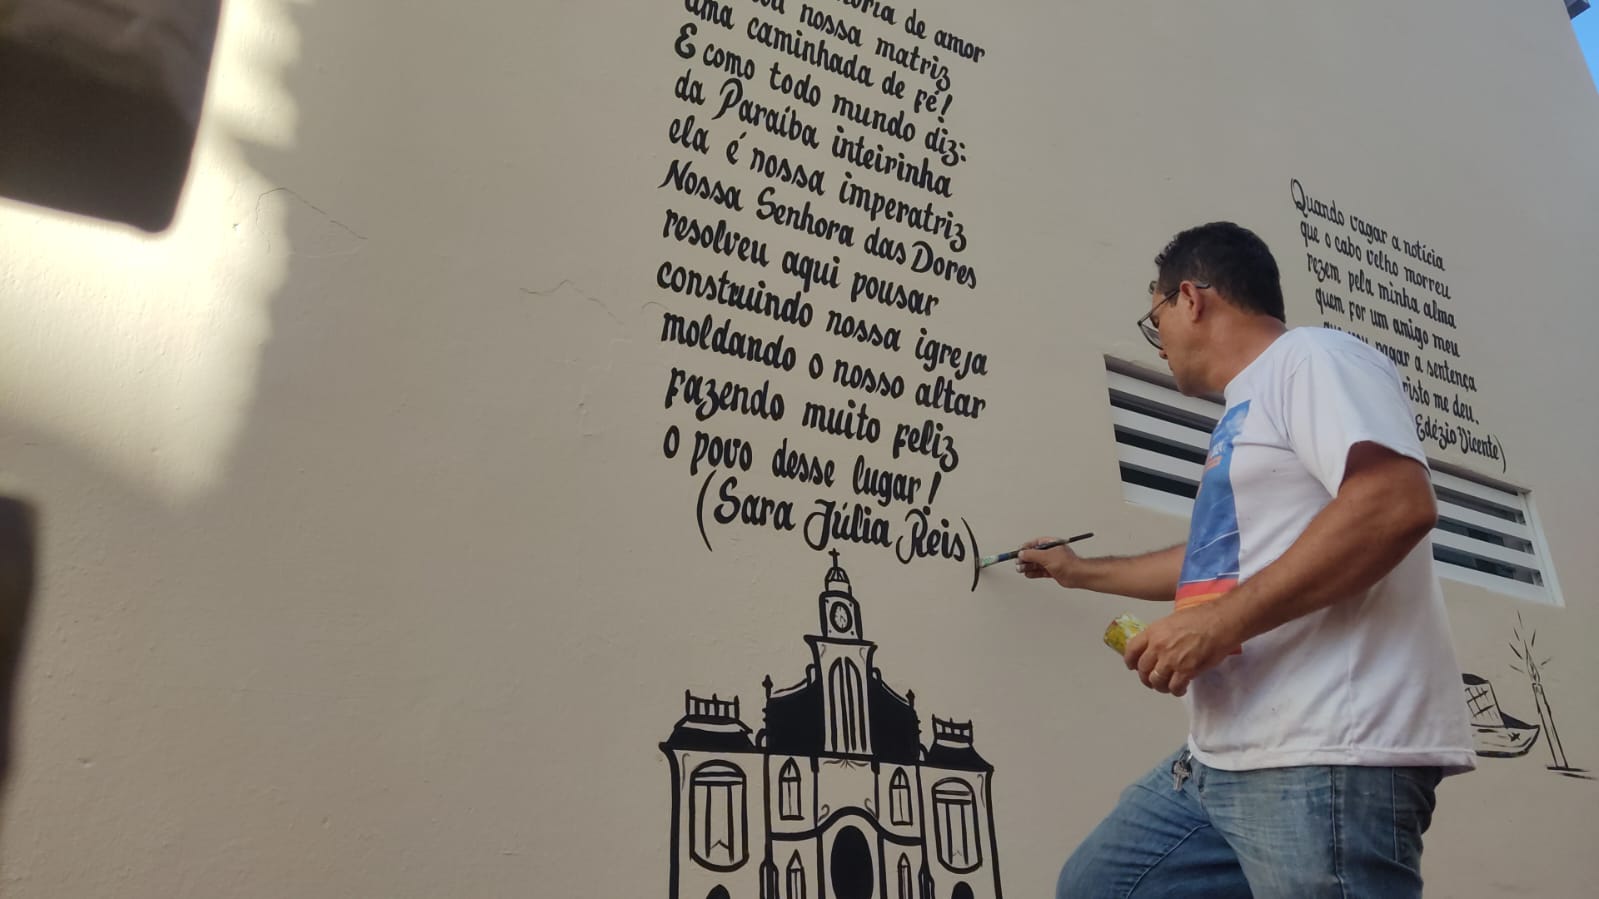 de amor
nossa matriz
uma caminhada de fé!
E como todo mundo diz:
da Paraíba inteirinha
ela é nossa imperatriz
Nossa Senhora das Dores
resolveu aqui pousar
construindo nossa igreja
moldando o nosso altar
fazendo muito feliz
o povo desse lugar!
(Sara Júlia Reis)
Quando vagar a notícia
que o cabo velho morreu
rezem pela minha alma
quem for um amigo meu
pagar a sentença
me deu.
Edézio Vicente)